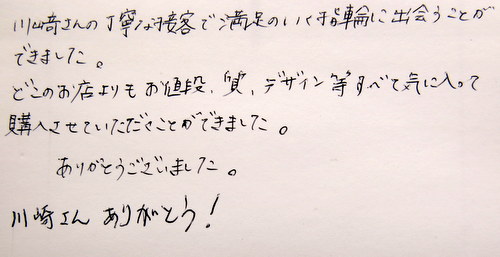 川崎さんの丁寧な接客で満足のいく指輪に出会うことが
できました。
どこのお店よりもお値段、質、デザイン等すべて気に入って
購入させていただくことができました。
ありがとうございました。
川崎さん ありがとう!